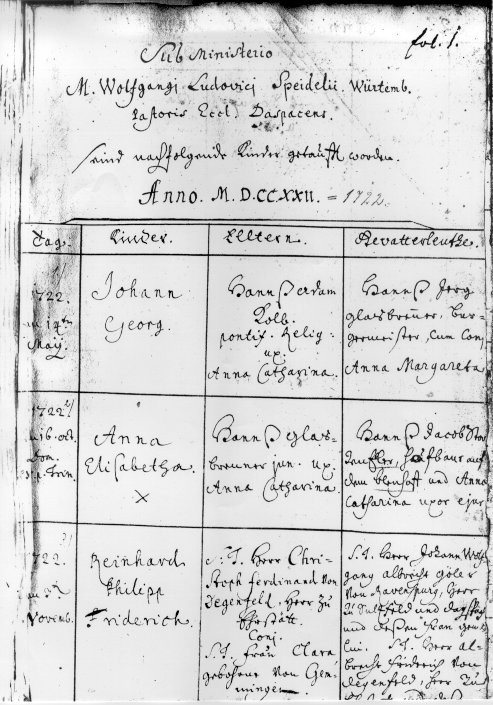 fol. 1.
Sub Ministerio
M. Wolfgangi Ludovici Speidelii Würtemb.
Pastoris Eccl. Daspacens.
sind nachfolgende Kinder getaufft worden.
Anno. M.D.CCXXII. = 1722.
Tag. Kinder. Elltern. Gevatterleuthe.
1/
1722.
14ten
Maij.
Johann
Georg.
Hannß Adam
Kolb.
pontif. Relig.
ux.
Anna Catharina.
Hannß Jerg
Glasbrenner, bur-
germeister, cum Conj.
Anna Margareta
2/
1722.
16. oct.
Dom.
Trin.
Anna
Elisabetha
X
Hannß Glas-
brenner jun. ux.
Anna Catharina.
Hannß Jacob
Hofbaur auf
dem und Anna
Catharina uxor ejus.
3/
1722.
Novemb.
Reinhard
Philipp
Friderich.
S. T. Herr Chri-
stoph Ferdinand von
Degenfeld, Herr zu
Conj.
S. T. Frau Clara
gebohrne von Gem-
mingen
S. T. Herr Johann Wolf-
gang Albrecht Göler
von Ravenspurg, Herr
zu Sulzfeld und
und
S. T. Herr Al-
brecht Friderich von
Degenfeld, Herr zu